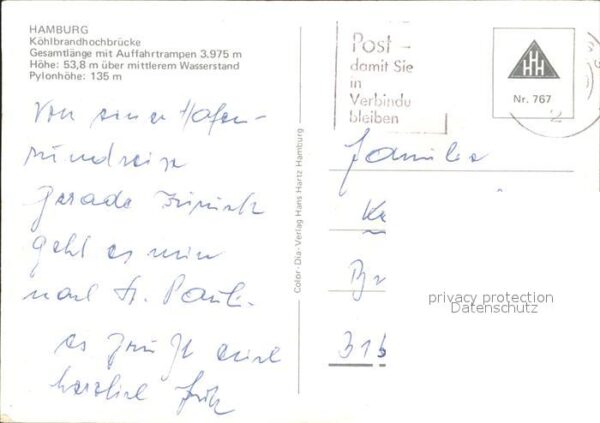 HAMBURG
Köhlbrandhochbrücke
Gesamtlänge mit Auffahrtrampen 3.975 m
Höhe: 53,8 m über mittlerem Wasserstand
Pylonhöhe: 135 m
Von einer Hafen-
rundreise
gerade zurück
geht es nun
nach St. Pauli.
es grüßt euch
herzlich Fritz
Color-Dia-Verlag Hans Hartz Hamburg
Post -
damit Sie
in
Verbindu
bleiben
HHH
Nr. 767
Familie
Kr
Br
316
privacy protection
Datenschutz